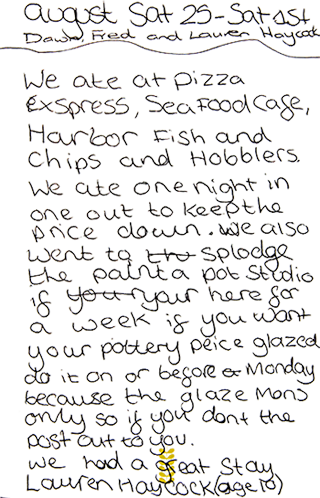 August Sat 25-Sat 1st
Dawn, Fred and Lauren Haycock
We ate at pizza
Exspress, Seafood Cafe,
Harbor Fish and
Chips and Hobblers.
We ate one night in
one out to keep the
price down. We also
went to the splodge
the paint a pot Studio
if your your here for
a week if you want
your pottery peice glazed
do it on or before or Monday
because the glaze Mons
only so if you dont the
post out to you.
we had a great stay
Lauren Haycock (age 10)